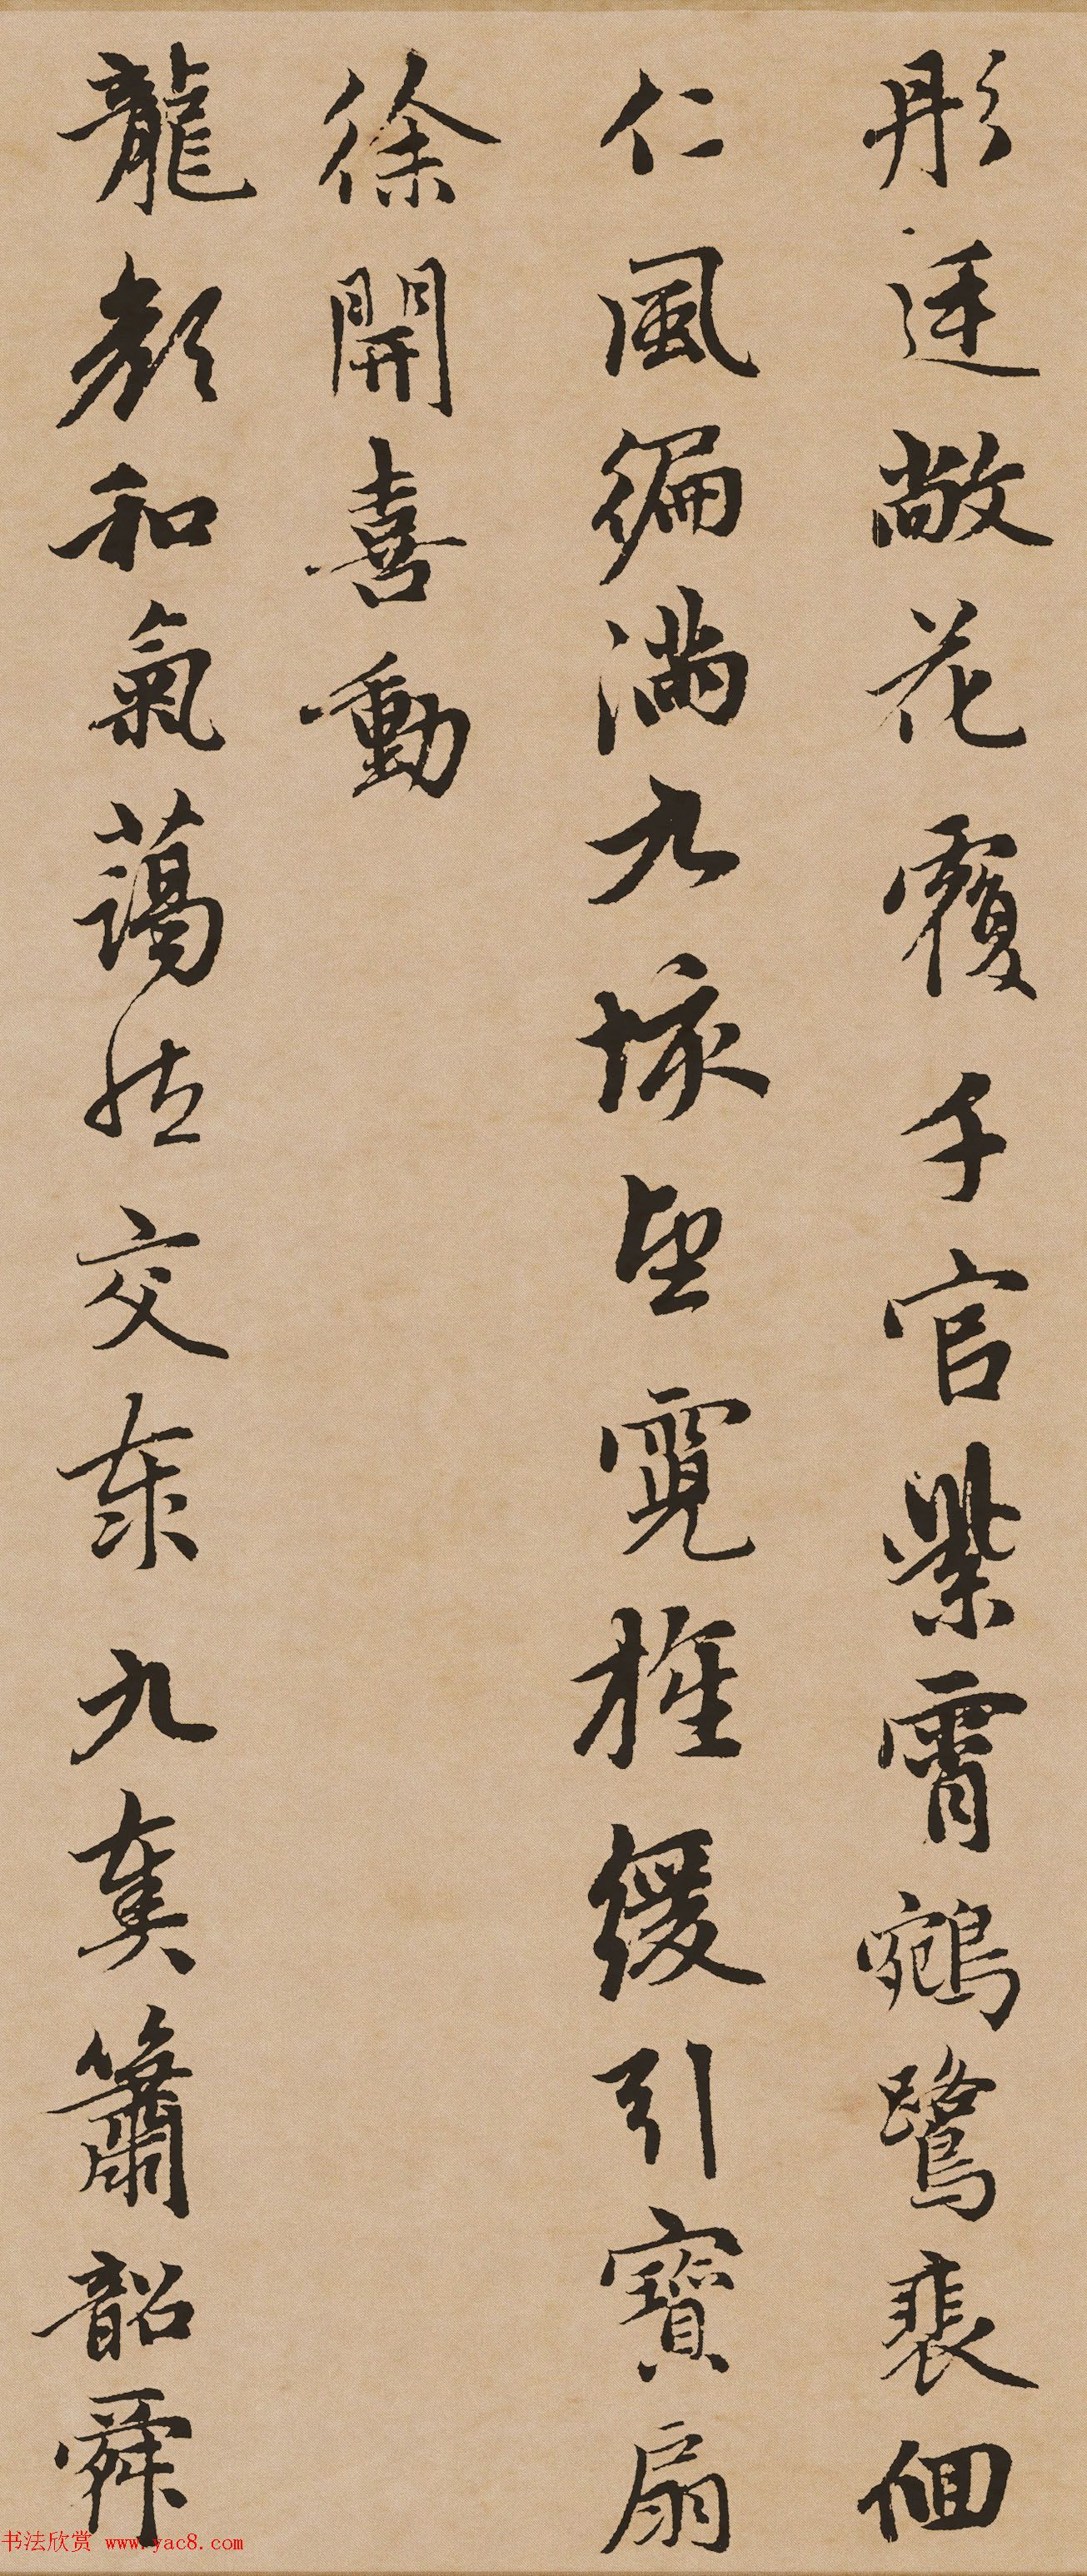 彤廷敞花覆千官紫霄鵷鷺裴佪
仁風徧満九垓望霓旌緩引寶扇
徐開喜動
龍顔和氣藹然交泰九奏簫韶舜
书法欣赏 www.yac8.com